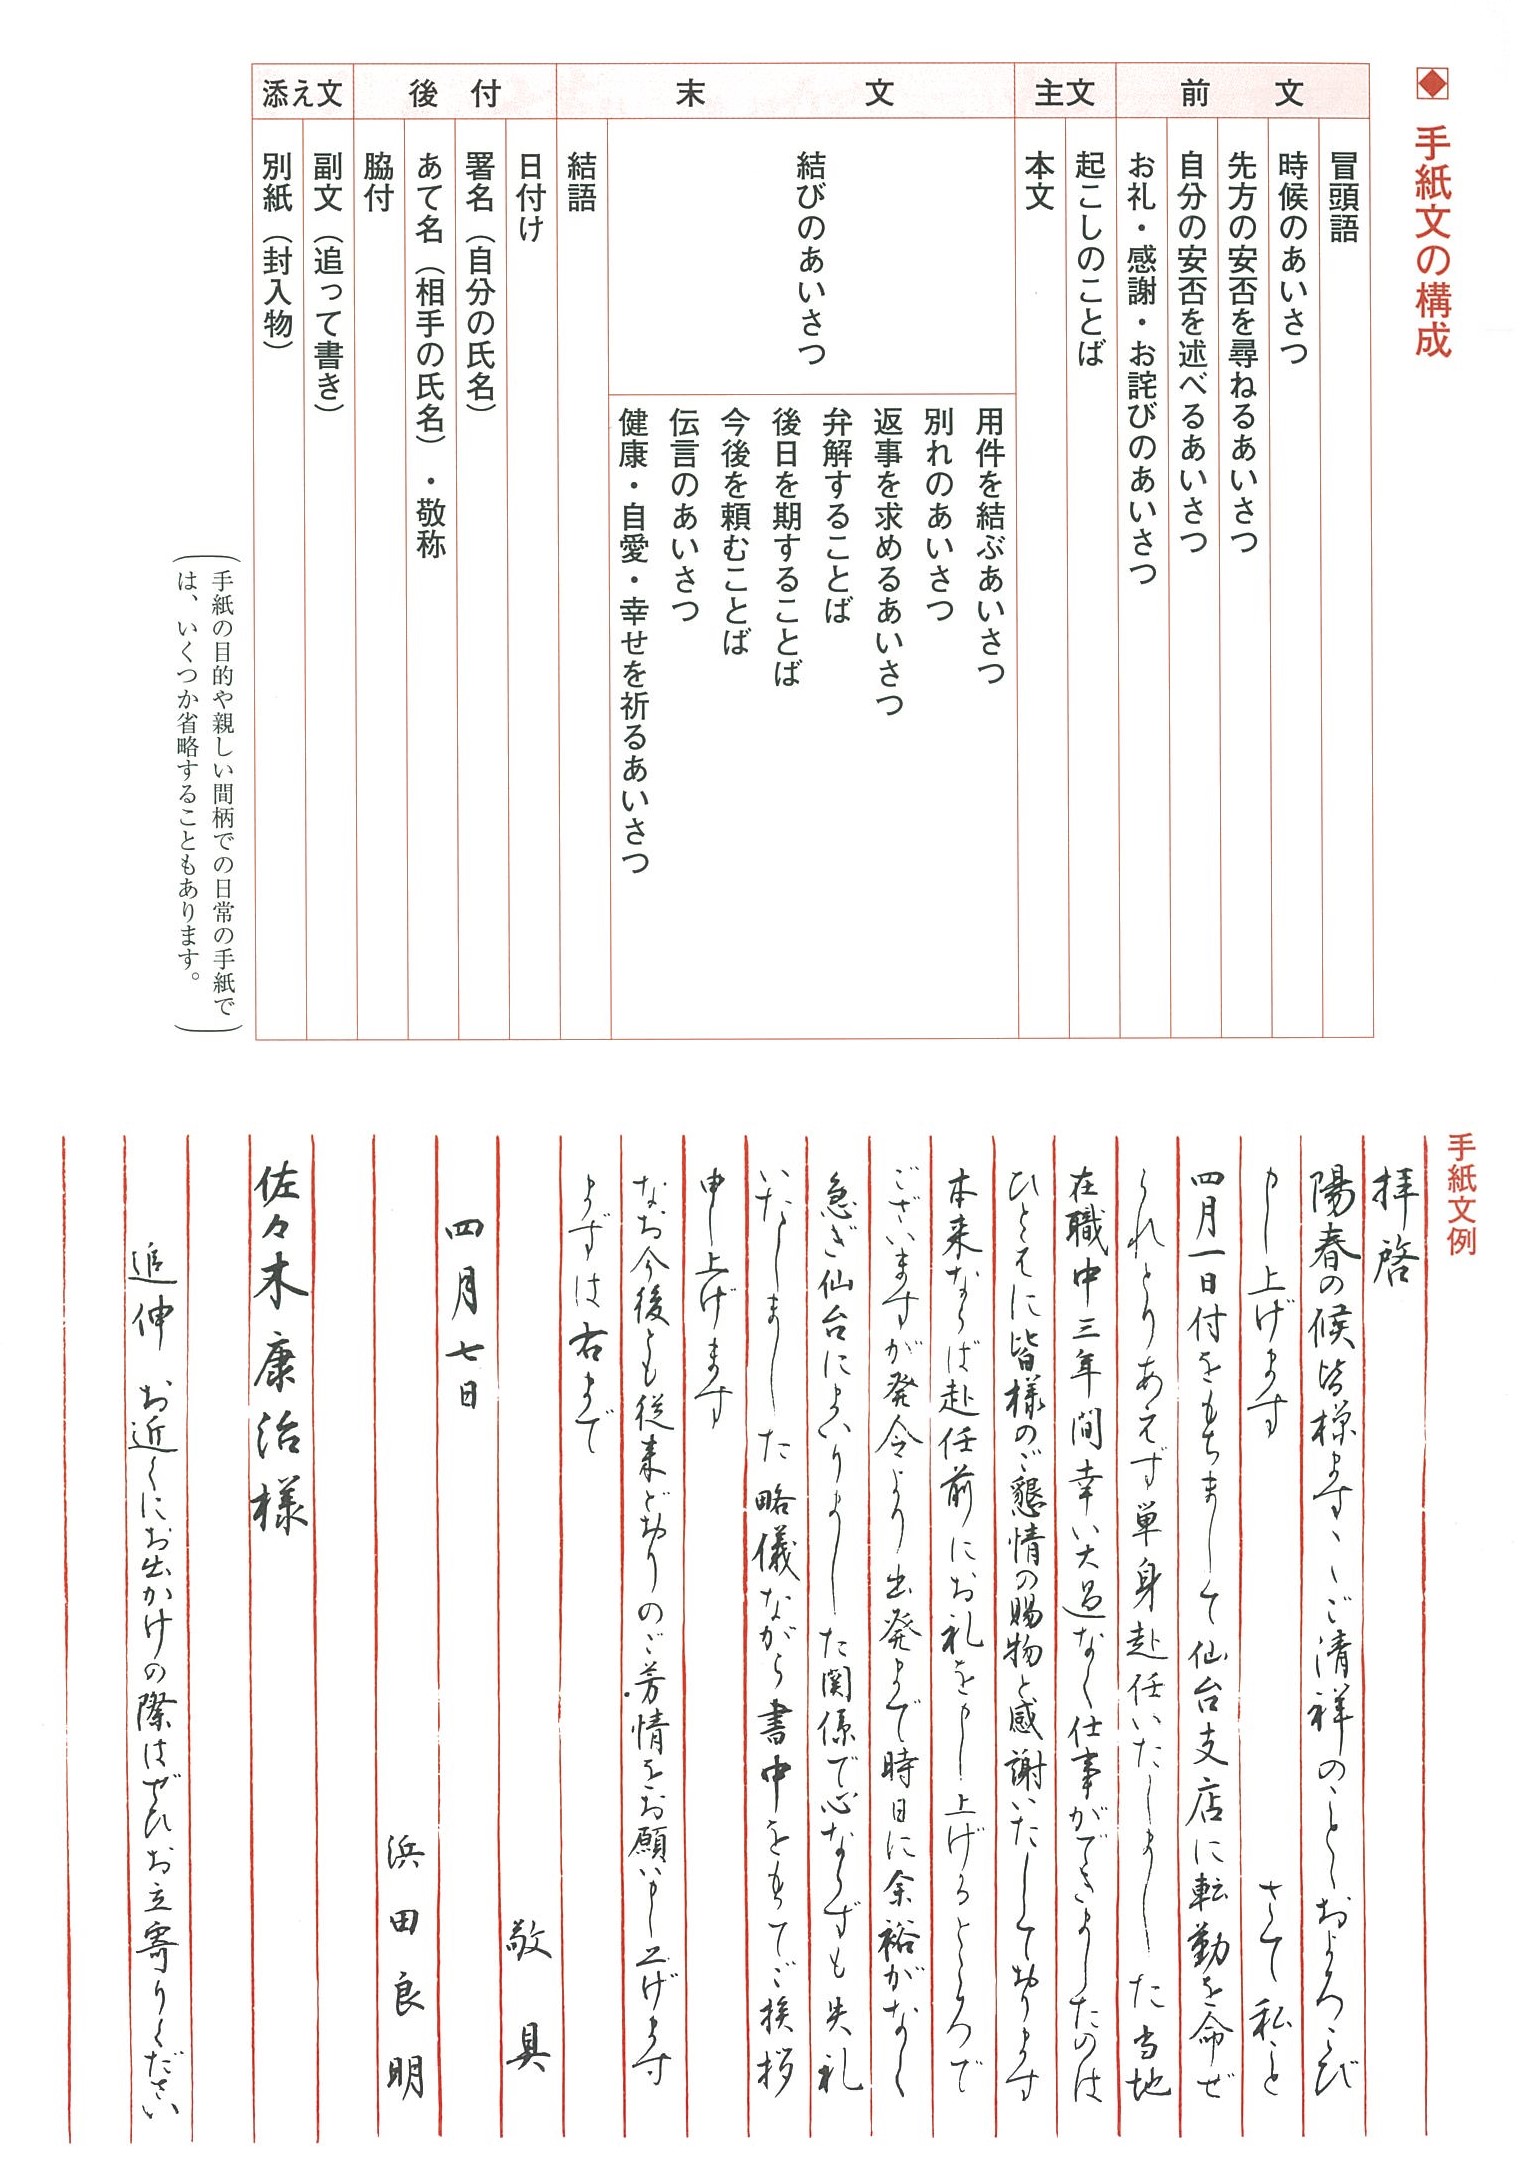 手紙文の構成
前文
冒頭語
時候のあいさつ
先方の安否を尋ねるあいさつ
自分の安否を述べるあいさつ
お礼・感謝・お詫びのあいさつ
主文
起こしのことば
本文
末文
結びのあいさつ
用件を結ぶあいさつ
別れのあいさつ
返事を求めるあいさつ
弁解することば
後日を期することば
今後を頼むことば
伝言のあいさつ
健康・自愛・幸せを祈るあいさつ
結語
後付
日付け
署名（自分の氏名）
あて名（相手の氏名）・敬称
脇付
添え文
副文（追って書き）
別紙（封入物）
（手紙の目的や親しい間柄での日常の手紙で
は、いくつか省略することもあります。）
手紙文例
拝啓
陽春の候皆様ますゝゝご清祥のことゝおよろこび
申し上げます　さて私こと
四月一日付をもちまして仙台支店に転勤を命ぜ
られとりあえず単身赴任いたしました当地
在職中三年間幸い大過なく仕事ができましたのは
ひとえに皆様のご懇情の賜物と感謝いたしております
本来ならば赴任前にお礼を申し上げるところで
ございますが発令より出発まで時日に余裕がなく
急ぎ仙台にまいりました関係で心ならずも失礼
いたしました略儀ながら書中をもってご挨拶
申し上げます
なお今後とも従来どおりのご芳情をお願い申し上げます
まずは右まで
敬具
四月七日
浜田良明
佐々木康治様
追伸　お近くにお出かけの際はぜひお立寄りください